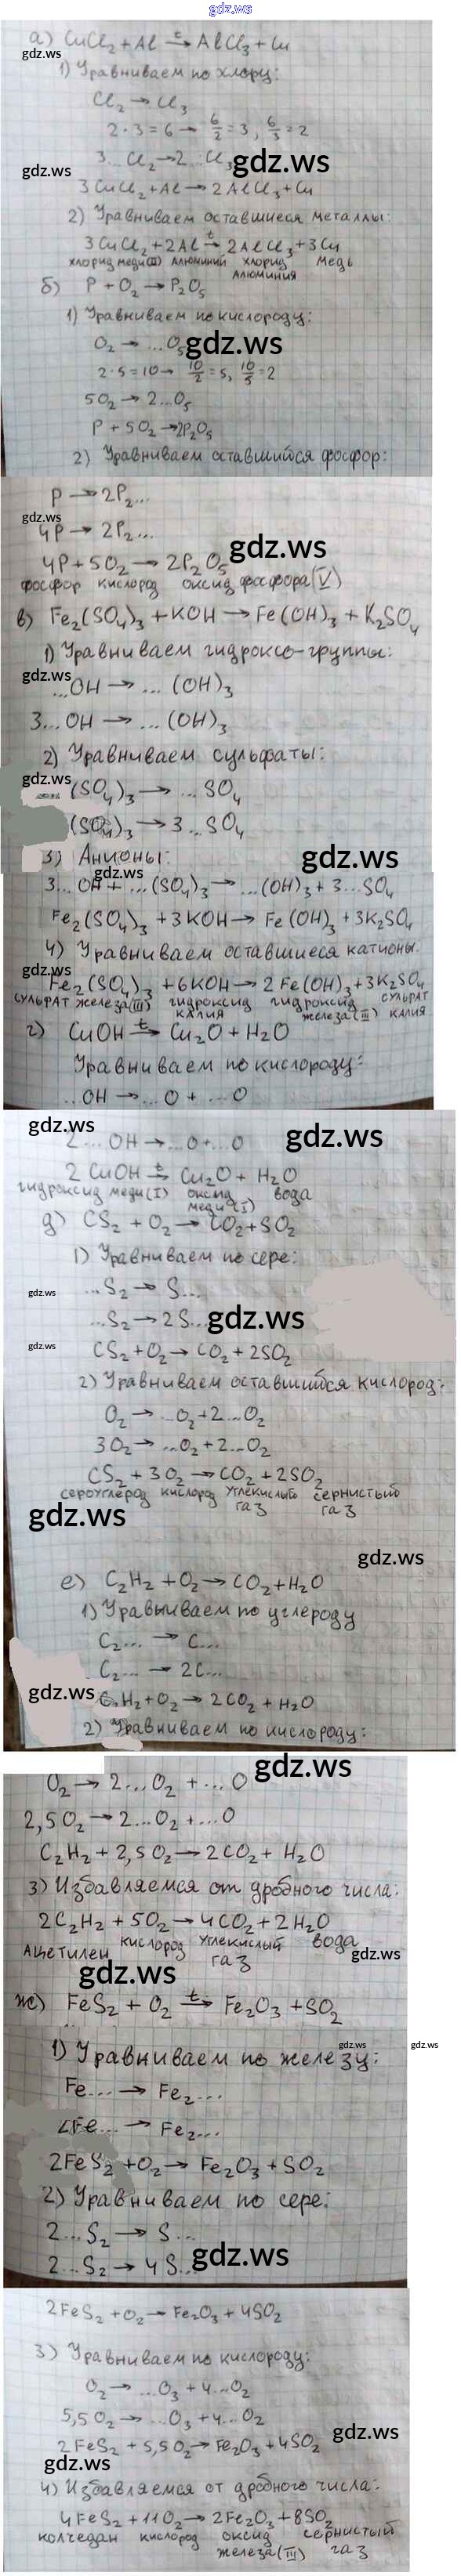 gdz.ws
а) CuCl₂ + Al →ᵗ AlCl₃ + Cu
gdz.ws
1) Уравниваем по хлору:
Cl₂ → Cl₃
2·3=6 → 6/2=3, 6/3=2
3...Cl₂ → 2...Cl₃
gdz.ws
gdz.ws
3CuCl₂ + Al → 2AlCl₃ + Cu
2) Уравниваем оставшиеся металлы:
3CuCl₂ + 2Al →ᵗ 2AlCl₃ + 3Cu
хлорид меди(II) алюминий хлорид алюминия медь
б) P + O₂ → P₂O₅
1) Уравниваем по кислороду:
O₂ → ...O₅
gdz.ws
2·5=10 → 10/2=5, 10/5=2
5O₂ → 2...O₅
P + 5O₂ → 2P₂O₅
2) Уравниваем оставшийся фосфор:
P → 2P₂...
gdz.ws
4P → 2P₂...
gdz.ws
4P + 5O₂ → 2P₂O₅
фосфор кислород оксид фосфора(V)
в) Fe₂(SO₄)₃ + KOH → Fe(OH)₃ + K₂SO₄
1) Уравниваем гидроксо-группы:
gdz.ws
...OH → ...(OH)₃
3...OH → ...(OH)₃
2) Уравниваем сульфаты:
gdz.ws
(SO₄)₃ → ...SO₄
(SO₄)₃ → 3...SO₄
3) Анионы:
gdz.ws
gdz.ws
3...OH + ...(SO₄)₃ → ...(OH)₃ + 3...SO₄
Fe₂(SO₄)₃ + 3KOH → Fe(OH)₃ + 3K₂SO₄
4) Уравниваем оставшиеся катионы.
gdz.ws
Fe₂(SO₄)₃ + 6KOH → 2Fe(OH)₃ + 3K₂SO₄
сульфат железа(III) гидроксид калия гидроксид железа(III) сульфат калия
г) CuOH →ᵗ Cu₂O + H₂O
Уравниваем по кислороду:
...OH → ...O + ...O
gdz.ws
2...OH → ...O + ...O
gdz.ws
2CuOH →ᵗ Cu₂O + H₂O
гидроксид меди(I) оксид меди(I) вода
д) CS₂ + O₂ → CO₂ + SO₂
1) Уравниваем по сере:
...S₂ → S...
gdz.ws
...S₂ → 2S...
gdz.ws
gdz.ws
CS₂ + O₂ → CO₂ + 2SO₂
2) Уравниваем оставшийся кислород:
O₂ → ...O₂ + 2...O₂
3O₂ → ...O₂ + 2...O₂
CS₂ + 3O₂ → CO₂ + 2SO₂
сероуглерод кислород углекислый газ сернистый газ
gdz.ws
gdz.ws
е) C₂H₂ + O₂ → CO₂ + H₂O
1) Уравниваем по углероду
C₂... → C...
C₂... → 2C...
gdz.ws
C₂H₂ + O₂ → 2CO₂ + H₂O
2) Уравниваем по кислороду:
gdz.ws
O₂ → 2...O₂ + ...O
2,5O₂ → 2...O₂ + ...O
C₂H₂ + 2,5O₂ → 2CO₂ + H₂O
3) Избавляемся от дробного числа:
2C₂H₂ + 5O₂ → 4CO₂ + 2H₂O
Ацетилен кислород углекислый газ вода
gdz.ws
gdz.ws
ж) FeS₂ + O₂ →ᵗ Fe₂O₃ + SO₂
gdz.ws
gdz.ws
1) Уравниваем по железу:
Fe... → Fe₂...
2Fe... → Fe₂...
2FeS₂ + O₂ → Fe₂O₃ + SO₂
2) Уравниваем по сере:
2...S₂ → S...
2...S₂ → 4S...
gdz.ws
2FeS₂ + O₂ → Fe₂O₃ + 4SO₂
3) Уравниваем по кислороду:
O₂ → ...O₃ + 4...O₂
5,5O₂ → ...O₃ + 4...O₂
gdz.ws
2FeS₂ + 5,5O₂ → Fe₂O₃ + 4SO₂
gdz.ws
4) Избавляемся от дробного числа:
4FeS₂ + 11O₂ → 2Fe₂O₃ + 8SO₂
колчедан кислород оксид железа(III) сернистый газ